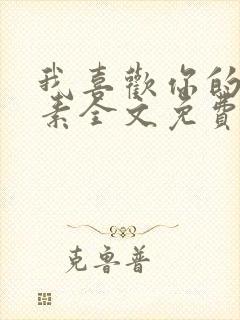 我喜歡你的
素全文免費
克魯普